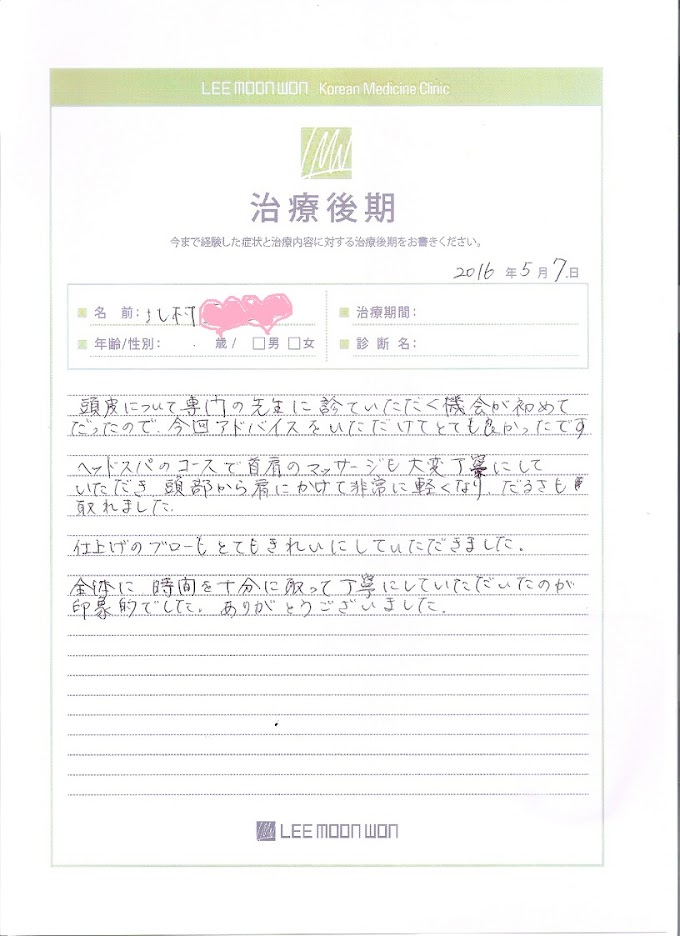 LEE MOON WON Korean Medicine Clinic
LMW
治療後期
今まで経験した症状と治療内容に対する治療後期をお書きください。
2016 年 5 月 7 日
名 前: 村
治療期間:
年齢/性別: 歳 / □男 □女
診 断 名:
頭皮について専門の先生に診ていただく機会が初めて
だったので、今回アドバイスをいただけてとても良かったです
ヘッドスパのコースで首肩のマッサージも大変丁寧にして
いただき 頭部から肩にかけて非常に軽くなり、だるさも
取れました。
仕上げのブローもとてもきれいにしていただきました。
全体に 時間を十分に取って丁寧にしていただいたのが
印象的でした。ありがとうございました。
LEE MOON WON